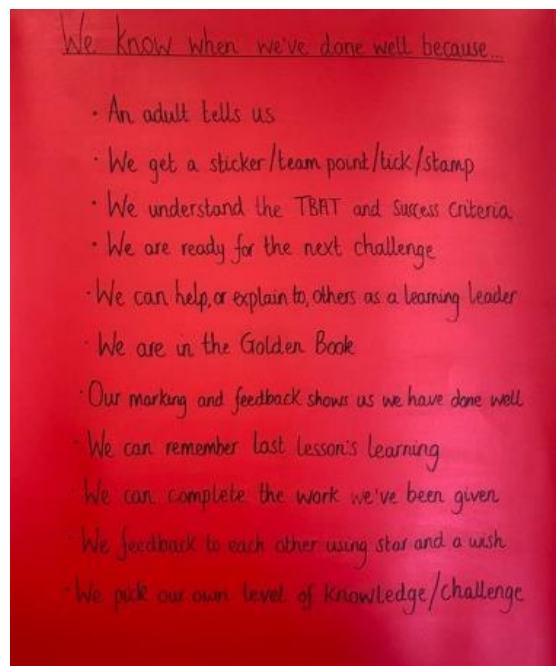 We know when we've done well because...
· An adult tells us
· We get a sticker/team point/tick/stamp
· We understand the TBAT and Success Criteria
· We are ready for the next challenge
· We can help, or explain to, others as a learning leader
· We are in the Golden Book
· Our marking and feedback shows us we have done well
· We can remember last lesson's learning
We can complete the work we've been given
· We feedback to each other using star and a wish
· We pick our own level of knowledge/challenge